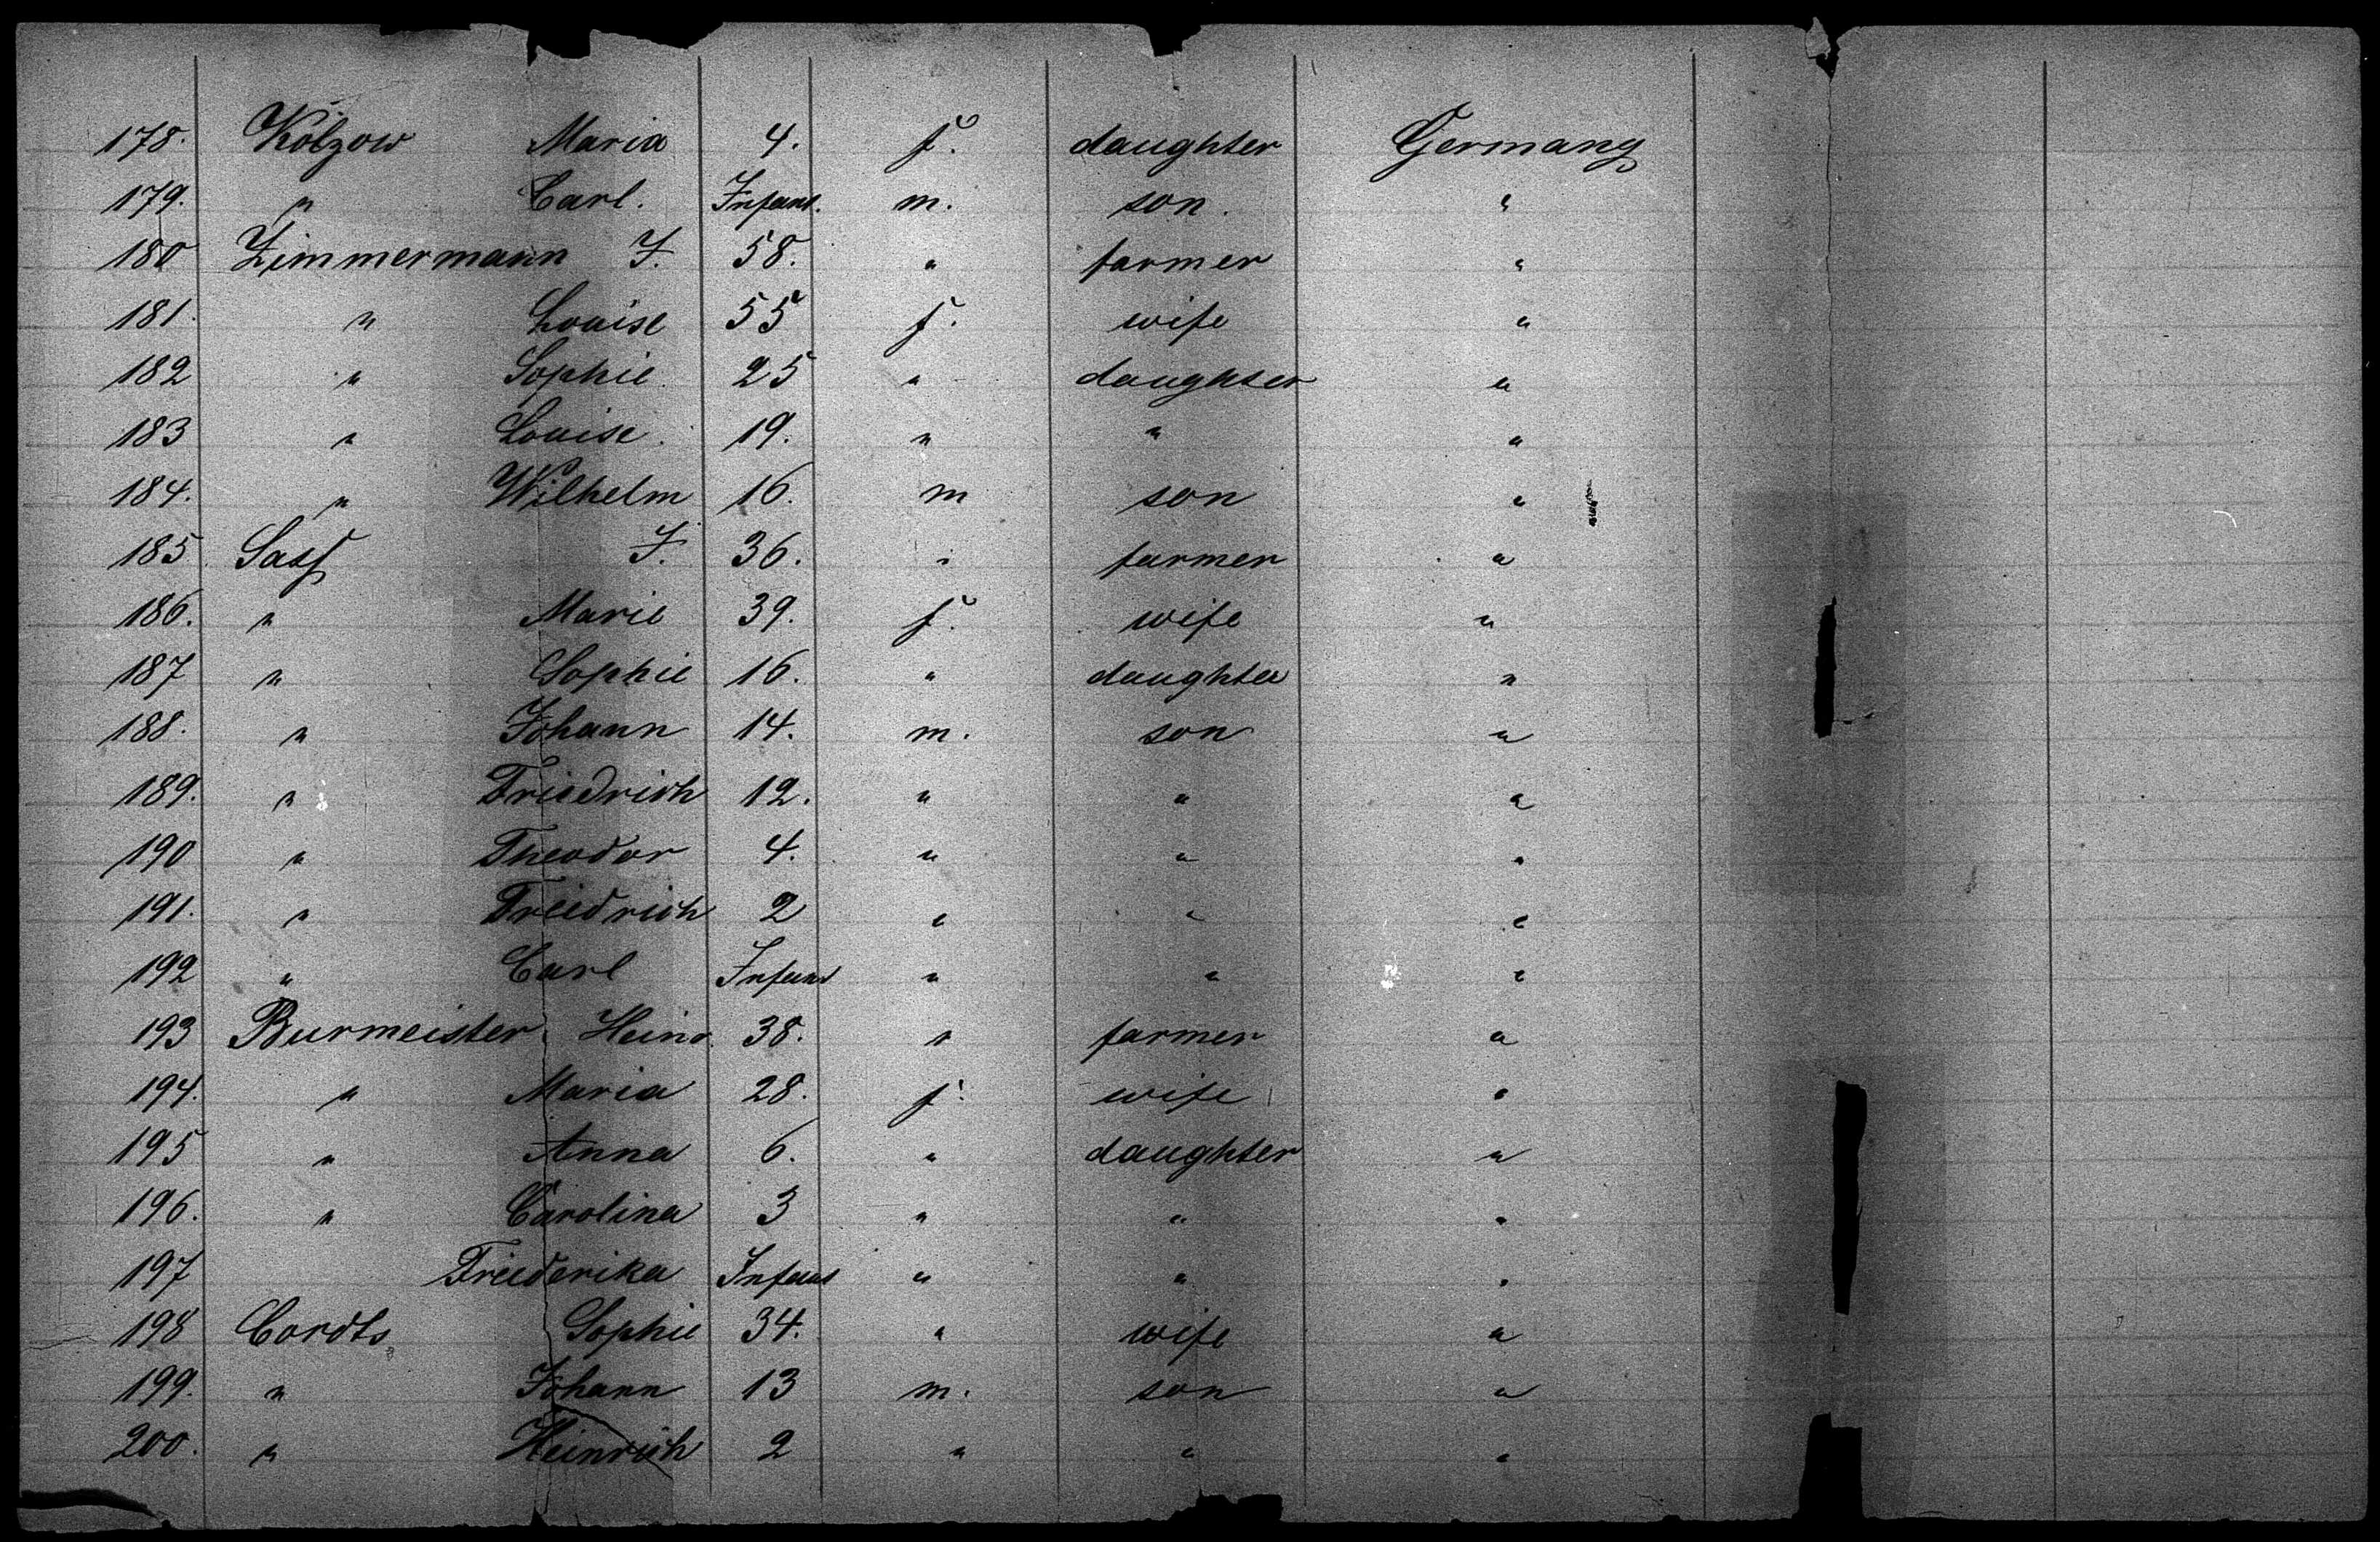 178. Kölzow Maria 4. f. daughter Germany
179. " Carl. Infant. m. son. "
180 Zimmermann J. 58. " farmer "
181. " Louise 55 f. wife "
182 " Sophie 25 " daughter "
183 " Louise. 19. " " "
184. " Wilhelm 16. m son "
185. Sass J. 36. " farmer "
186. " Marie 39. f. wife "
187 " Sophie 16. " daughter "
188. " Johann 14. m. son "
189. " Friedrich 12. " " "
190 " Theodor 4. " " "
191. " Friedrich 2 " " "
192 " Carl Infant " " "
193 Burmeister Heinr. 38. " farmer "
194. " Maria 28. f. wife "
195 " Anna 6. " daughter "
196. " Carolina 3 " " "
197 Friederika Infant " " "
198 Cordts Sophie 34. " wife "
199. " Johann 13 m. son "
200. " Heinrich 2 " " "